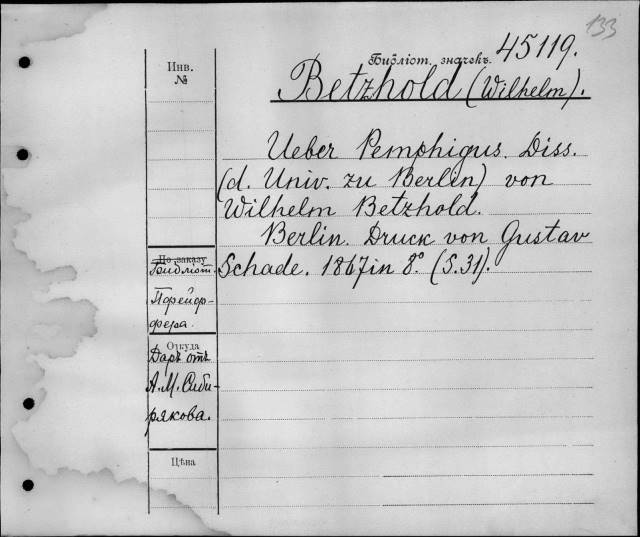 133
Библіот. значекъ. 45119.
Инв.
№
Betzhold (Wilhelm).
Ueber Pemphigus. Diss.
(d. Univ. zu Berlin) von
Wilhelm Betzhold.
Berlin. Druck von Gustav
Schade. 1867 in 8º. (S. 31).
По заказу
Библіот.
Пфейф-
фера.
Откуда
Даръ отъ
А. М. Сиби-
рякова.
Цѣна